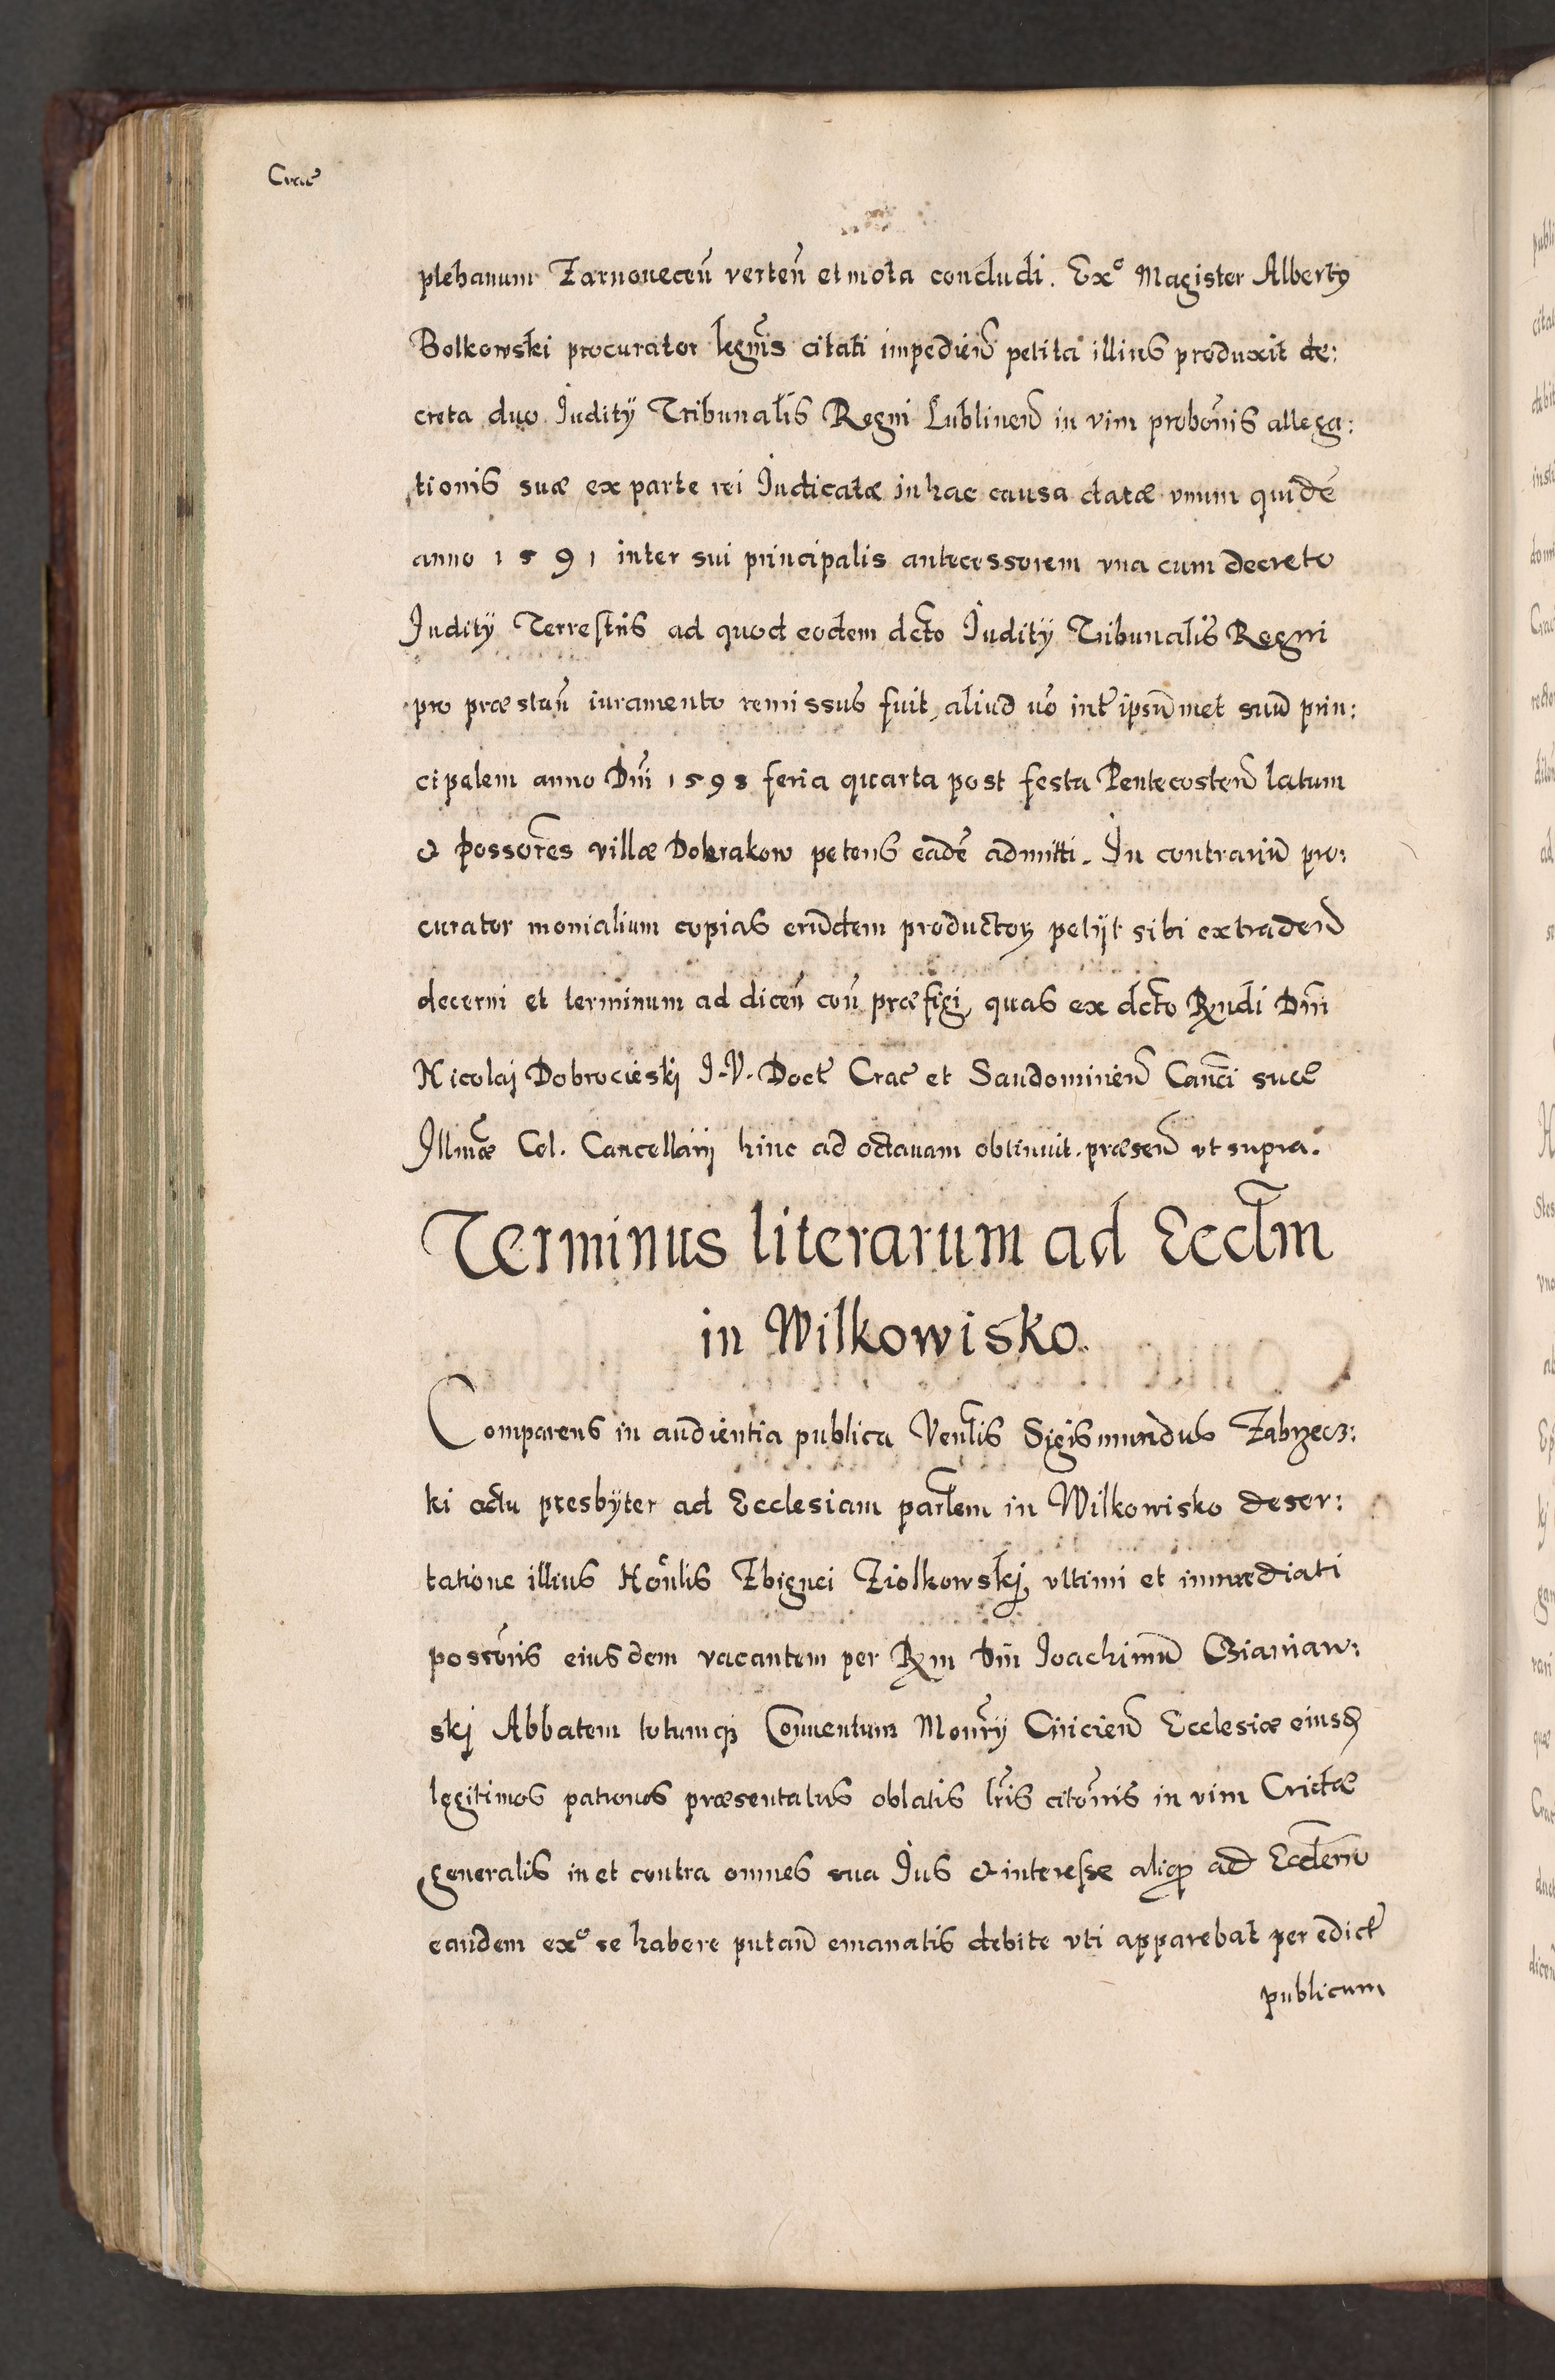 Crac̃
plebanum Zarnoveceñ verteñ et mota concludi. Exº Magister Albertꝯ
Bolkowski procurator legñis citati impedieñ petita illius produxit de:
creta duo Juditÿ Tribunalis Regni Lublineñ in vim probõnis allega:
tionis suæ ex parte rei Judicatæ in hac causa datæ vnum quidẽ
anno 1591 inter sui principalis antecessorem vna cum decreto
Juditÿ Terrestris ad quod eodem dcto Juditÿ Tribunalis Regni
pro præstañ iuramento remissus fuit, aliud uõ inter̃ ipsũmet suũ prin:
cipalem anno Dñi 1598 feria quarta post festa Pentecosteñ latum
& possoȓes villæ Dobrakow petens eadẽ admitti. In contrariũ pro:
curator monialium copias erũdem productoꝝ petijt sibi extradeñ
decerni et terminum ad diceñ coñ præfigi, quas ex dcto Rñdi Dñi
Nicolaj Dobrocieskj J. V. Doct̃ Crac̃ et Sandomirieñ Cañci suæ
Illmæ Cel. Cancellarij hinc ad octauam obtinuit. præseñ vt supra.
Terminus literarum ad Ecclm̃
in Wilkowisko.
Comparens in audientia publica Venlis Sigismundus Zabrzecz:
ki actu presbÿter ad Ecclesiam parlem in Wilkowisko deser:
tatione illius Honlis Zbignei Ziolkowskj, vltimi et immediati
possõris eiusdem vacantem per Rm̃ Dñ Joachimũ Czianiaw:
skj Abbatem totumqꝫ Conuentum Monrÿ Ciricieñ Ecclesiæ eiusd̃
legitimos patronos præsentatus oblatis lr̃is citõnis in vim Cridæ
generalis in et contra omnes sua Jus & interesse aliqꝫ ad Ecclem̃
eandem exº se habere putañ emanatis debite vti apparebat per edict̃
publicum